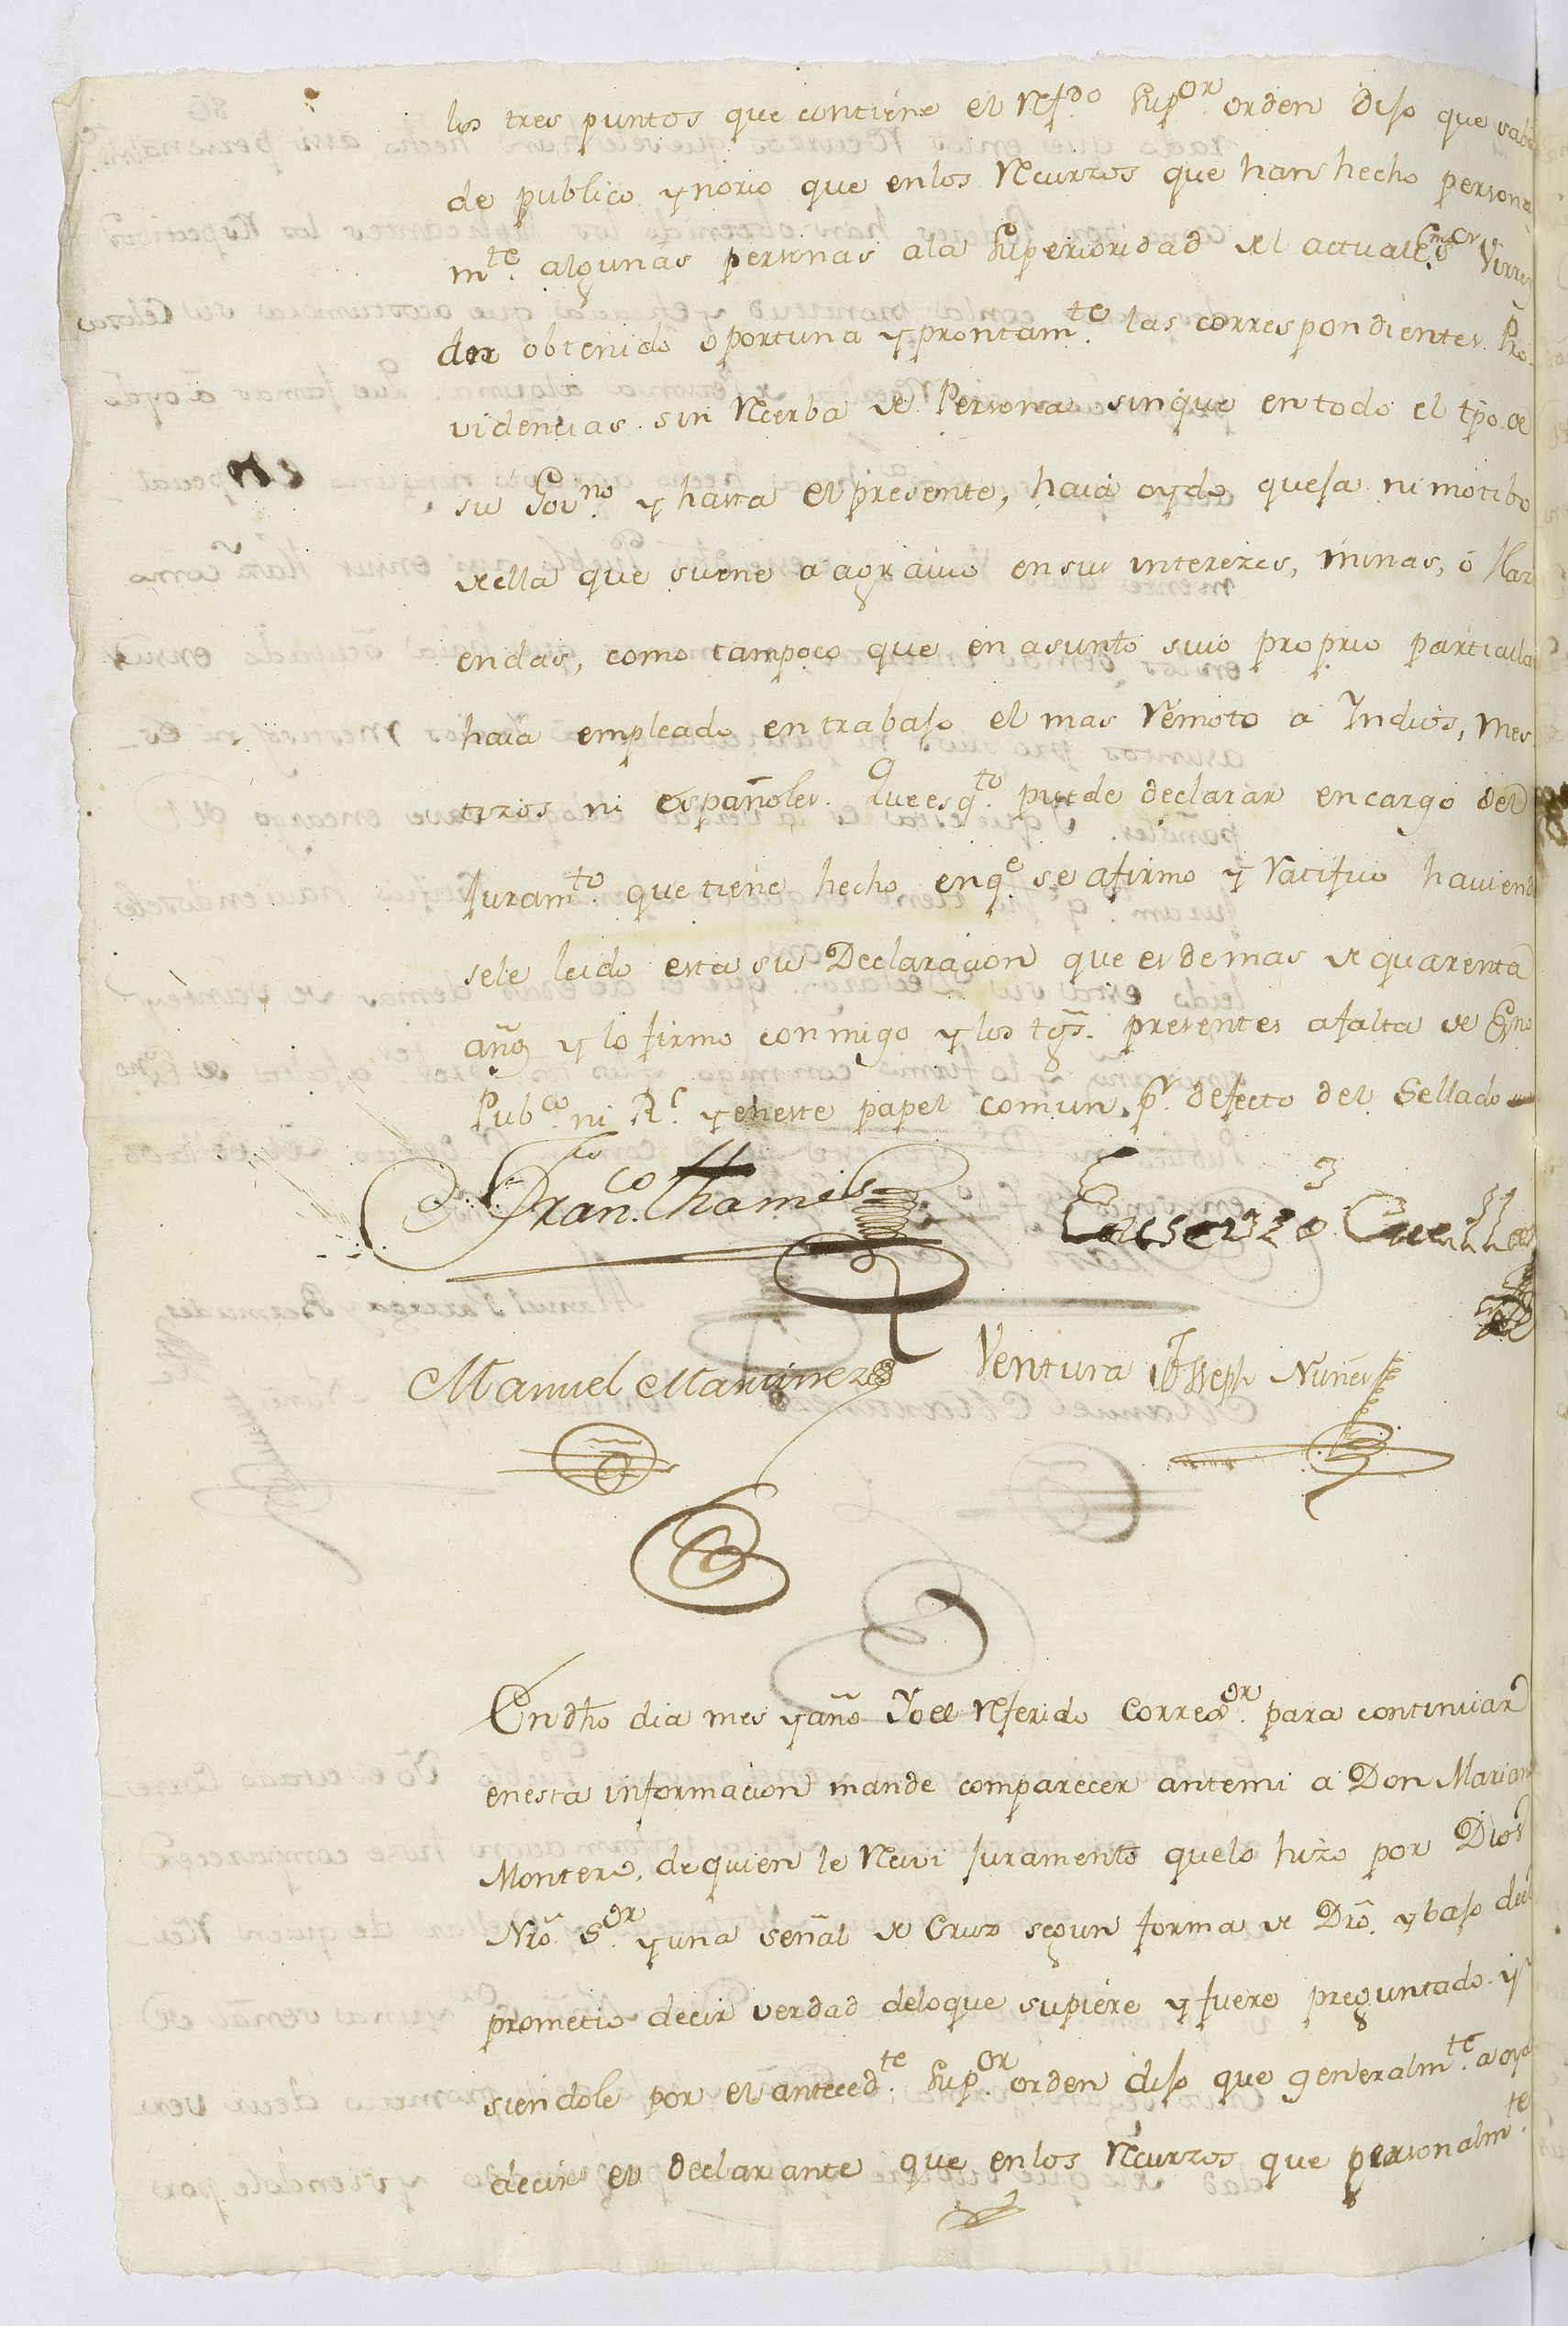 los tres puntos que contiene el Rf.do Sup.or orden dijo que sabe
de publico y norio que en los Recurzos que han hecho persona
m.te algunas personas a la Superioridad del actual Virrey
obtenido oportuna y prontam.te las correspondientes Pro-
videncias sin Recerba de Persona sin que en todo el tpo. de
su Gov.no y hasta el presente, haia oydo queja ni motibo
de ella que suene a agravio en sus interezes, minas, ó Haz
endas, como tampoco que en asunto suio proprio particular
haia empleado en trabajo el mas remoto a Indios, mes
tizos ni españoles. Que es q.to puede declarar en cargo del
Juram.to que tiene hecho en q.e se afirmo y ratifico haviend
sele leido esta su Declaracion que es de mas de quarenta
añ.s y lo firmo conmigo y los tgs. presentes a falta de Es.no
Pub.co ni R.l y en este papel comun p.r defecto del Sellado
Fran.co Thames
Cuellar
Manuel Martinez Ventura Joseph Nuñes
En dho dia mes y año Yo el Referido Correg.or para continuar
en esta informacion mande comparecer ante mi a Don Mariano
Montero, de quien le Recivi Juramento que lo hizo por Dios
Nro. S.or y una señal de Cruz segun forma de Dro. y bajo del
prometio decir verdad de lo que supiere y fuere preguntado y
siendole por el anteced.te Sup.or orden dijo que generalm.te a oyd
decir el declarante que en los Recurzos que personalm.te